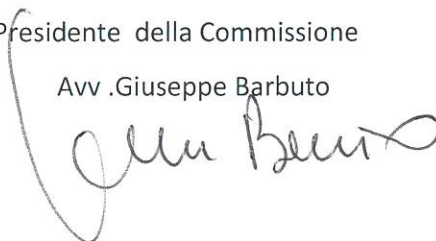 Presidente della Commissione
Avv .Giuseppe Barbuto